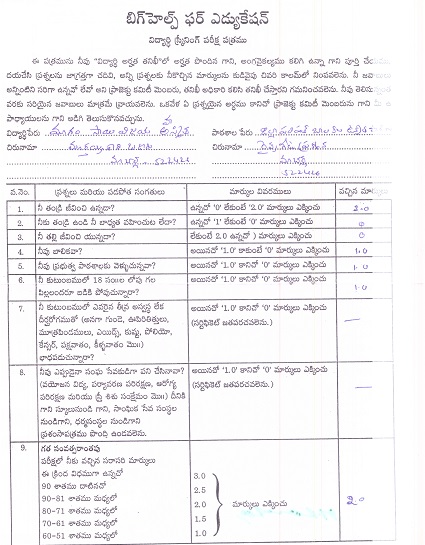 బిగ్‌హెల్ప్ ఫర్ ఎడ్యుకేషన్
విద్యార్థి స్క్రీనింగ్ పరీక్ష పత్రము
ఈ పత్రమును నీవు "విద్యార్థి అర్హత తనిఖీ"లో అర్హత పొందిన గాని, అంగవైకల్యము కలిగి ఉన్నా గాని పూర్తి
దయచేసి ప్రశ్నలను జాగ్రత్తగా చదివి, అన్ని ప్రశ్నలకు నీకొచ్చిన మార్కులను కుడివైపు చివరి కాలమ్‌లో నింపవలెను. నీ
అన్నింటిని సరిగా ఉన్నవో లేవో అని ప్రాజెక్టు కమిటీ మెంబరు, తనిఖీ అధికారి కలిసి తనిఖీ చేస్తారని గమనించవలెను. నీవు
వరకు సరియైన జవాబులు మాత్రమే వ్రాయవలెను. ఒకవేళ ఏ ప్రశ్నయైన అర్థము కానిచో ప్రాజెక్టు కమిటీ మెంబరును గాని
పాధ్యాయులను గాని అడిగి తెలుసుకొనవచ్చును.
విద్యార్థిపేరు పాఠశాల పేరు
చిరునామా చిరునామా
522426
522426
వ.నెం. ప్రశ్నలు మరియు పదపోత సంగతులు మార్కుల వివరములు వచ్చిన
1. నీ తండ్రి జీవించి ఉన్నడా? ఉన్నచో '0' లేకుంటే '2.0' మార్కులు ఎక్కించు 2.0
2. నీకు తండ్రి ఉండి నీ బాధ్యత వహించుట లేదా? ఉన్నచో '1' లేకుంటే '0' మార్కులు ఎక్కించు 0
3. నీ తల్లి జీవించి యున్నదా? లేకుంటే 2.0 ఉన్నచో 0 మార్కులు ఎక్కించు 0
4. నీవు బాలికవా? అయినచో '1.0' కాకుంటే '0' మార్కులు ఎక్కించు 1.0
5. నీవు ప్రభుత్వ పాఠశాలకు వెళ్ళుచున్నావా? అయినచో '1.0' కానిచో '0' మార్కులు ఎక్కించు 1.0
6. నీ కుటుంబములో 18 సం॥ల లోపు గల అయినచో '1.0' కానిచో '0' మార్కులు ఎక్కించు
పిల్లలందరూ బడికి పోవుచున్నారా? 1.0
7. నీ కుటుంబములో ఎవరైన తీవ్ర అస్వస్థ లేక అయినచో '1.0' కానిచో '0' మార్కులు ఎక్కించు
దీర్ఘరోగముతో (అనగా గుండె, ఊపిరితిత్తులు, (సర్టిఫికెట్ జతపరచవలెను.) —
మూత్రపిండములు, ఎయిడ్స్, కుష్ఠు, పోలియో,
కేన్సర్, పక్షవాతం, కీళ్ళవాతం మొ॥)
బాధపడుచున్నారా?
8. నీవు ఎప్పుడైనా సంఘ సేవకుడిగా పని చేసినావా? అయినచో '1.0' కానిచో '0' మార్కులు ఎక్కించు
(వయోజన విద్య, పర్యావరణ పరిరక్షణ, ఆరోగ్య (సర్టిఫికెట్ జతపరచవలెను.) —
పరిరక్షణ మరియు స్త్రీ శిశు సంక్షేమం మొ॥) దీనికి
గాని స్కూలునుండి గాని, సాంఘిక సేవ సంస్థల
నుండిగాని, ధర్మసంస్థల నుండిగాని
ప్రశంసాపత్రము పొంది ఉండవలెను.
9. గత సంవత్సరాంతపు
పరీక్షలో నీకు వచ్చిన సరాసరి మార్కులు
ఈ క్రింద విధముగా ఉన్నచో
90 శాతము దాటినచో 3.0
90-81 శాతము మధ్యలో 2.5
80-71 శాతము మధ్యలో 2.0 మార్కులు ఎక్కించు 2.0
70-61 శాతము మధ్యలో 1.5
60-51 శాతము మధ్యలో 1.0